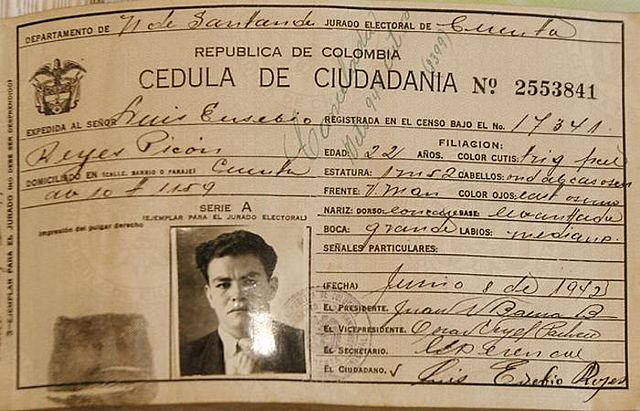 DEPARTAMENTO DE N de Santander JURADO ELECTORAL DE Cucuta
REPUBLICA DE COLOMBIA
CEDULA DE CIUDADANIA Nº 2553841
EXPEDIDA AL SEÑOR Luis Eusebio REGISTRADA EN EL CENSO BAJO EL No. 17341.
Reyes Picón
FILIACION:
EDAD: 22 AÑOS. COLOR CUTIS: trig
DOMICILIADO EN (CALLE, BARRIO O PARAJE) Cucuta
ESTATURA: 1 m 52 CABELLOS:
av 10 # 1159
FRENTE: COLOR OJOS:
SERIE A
(EJEMPLAR PARA EL JURADO ELECTORAL)
NARIZ: DORSO: BASE: levantada
Impresión del pulgar derecho
BOCA: grande LABIOS: medianos
SEÑALES PARTICULARES:
(FECHA) Junio 8 de 1942
EL PRESIDENTE. Juan
EL VICEPRESIDENTE.
EL SECRETARIO.
EL CIUDADANO. Luis Eusebio Reyes
3-EJEMPLAR PARA EL JURADO (NO DEBE SER DESPRENDIDO)